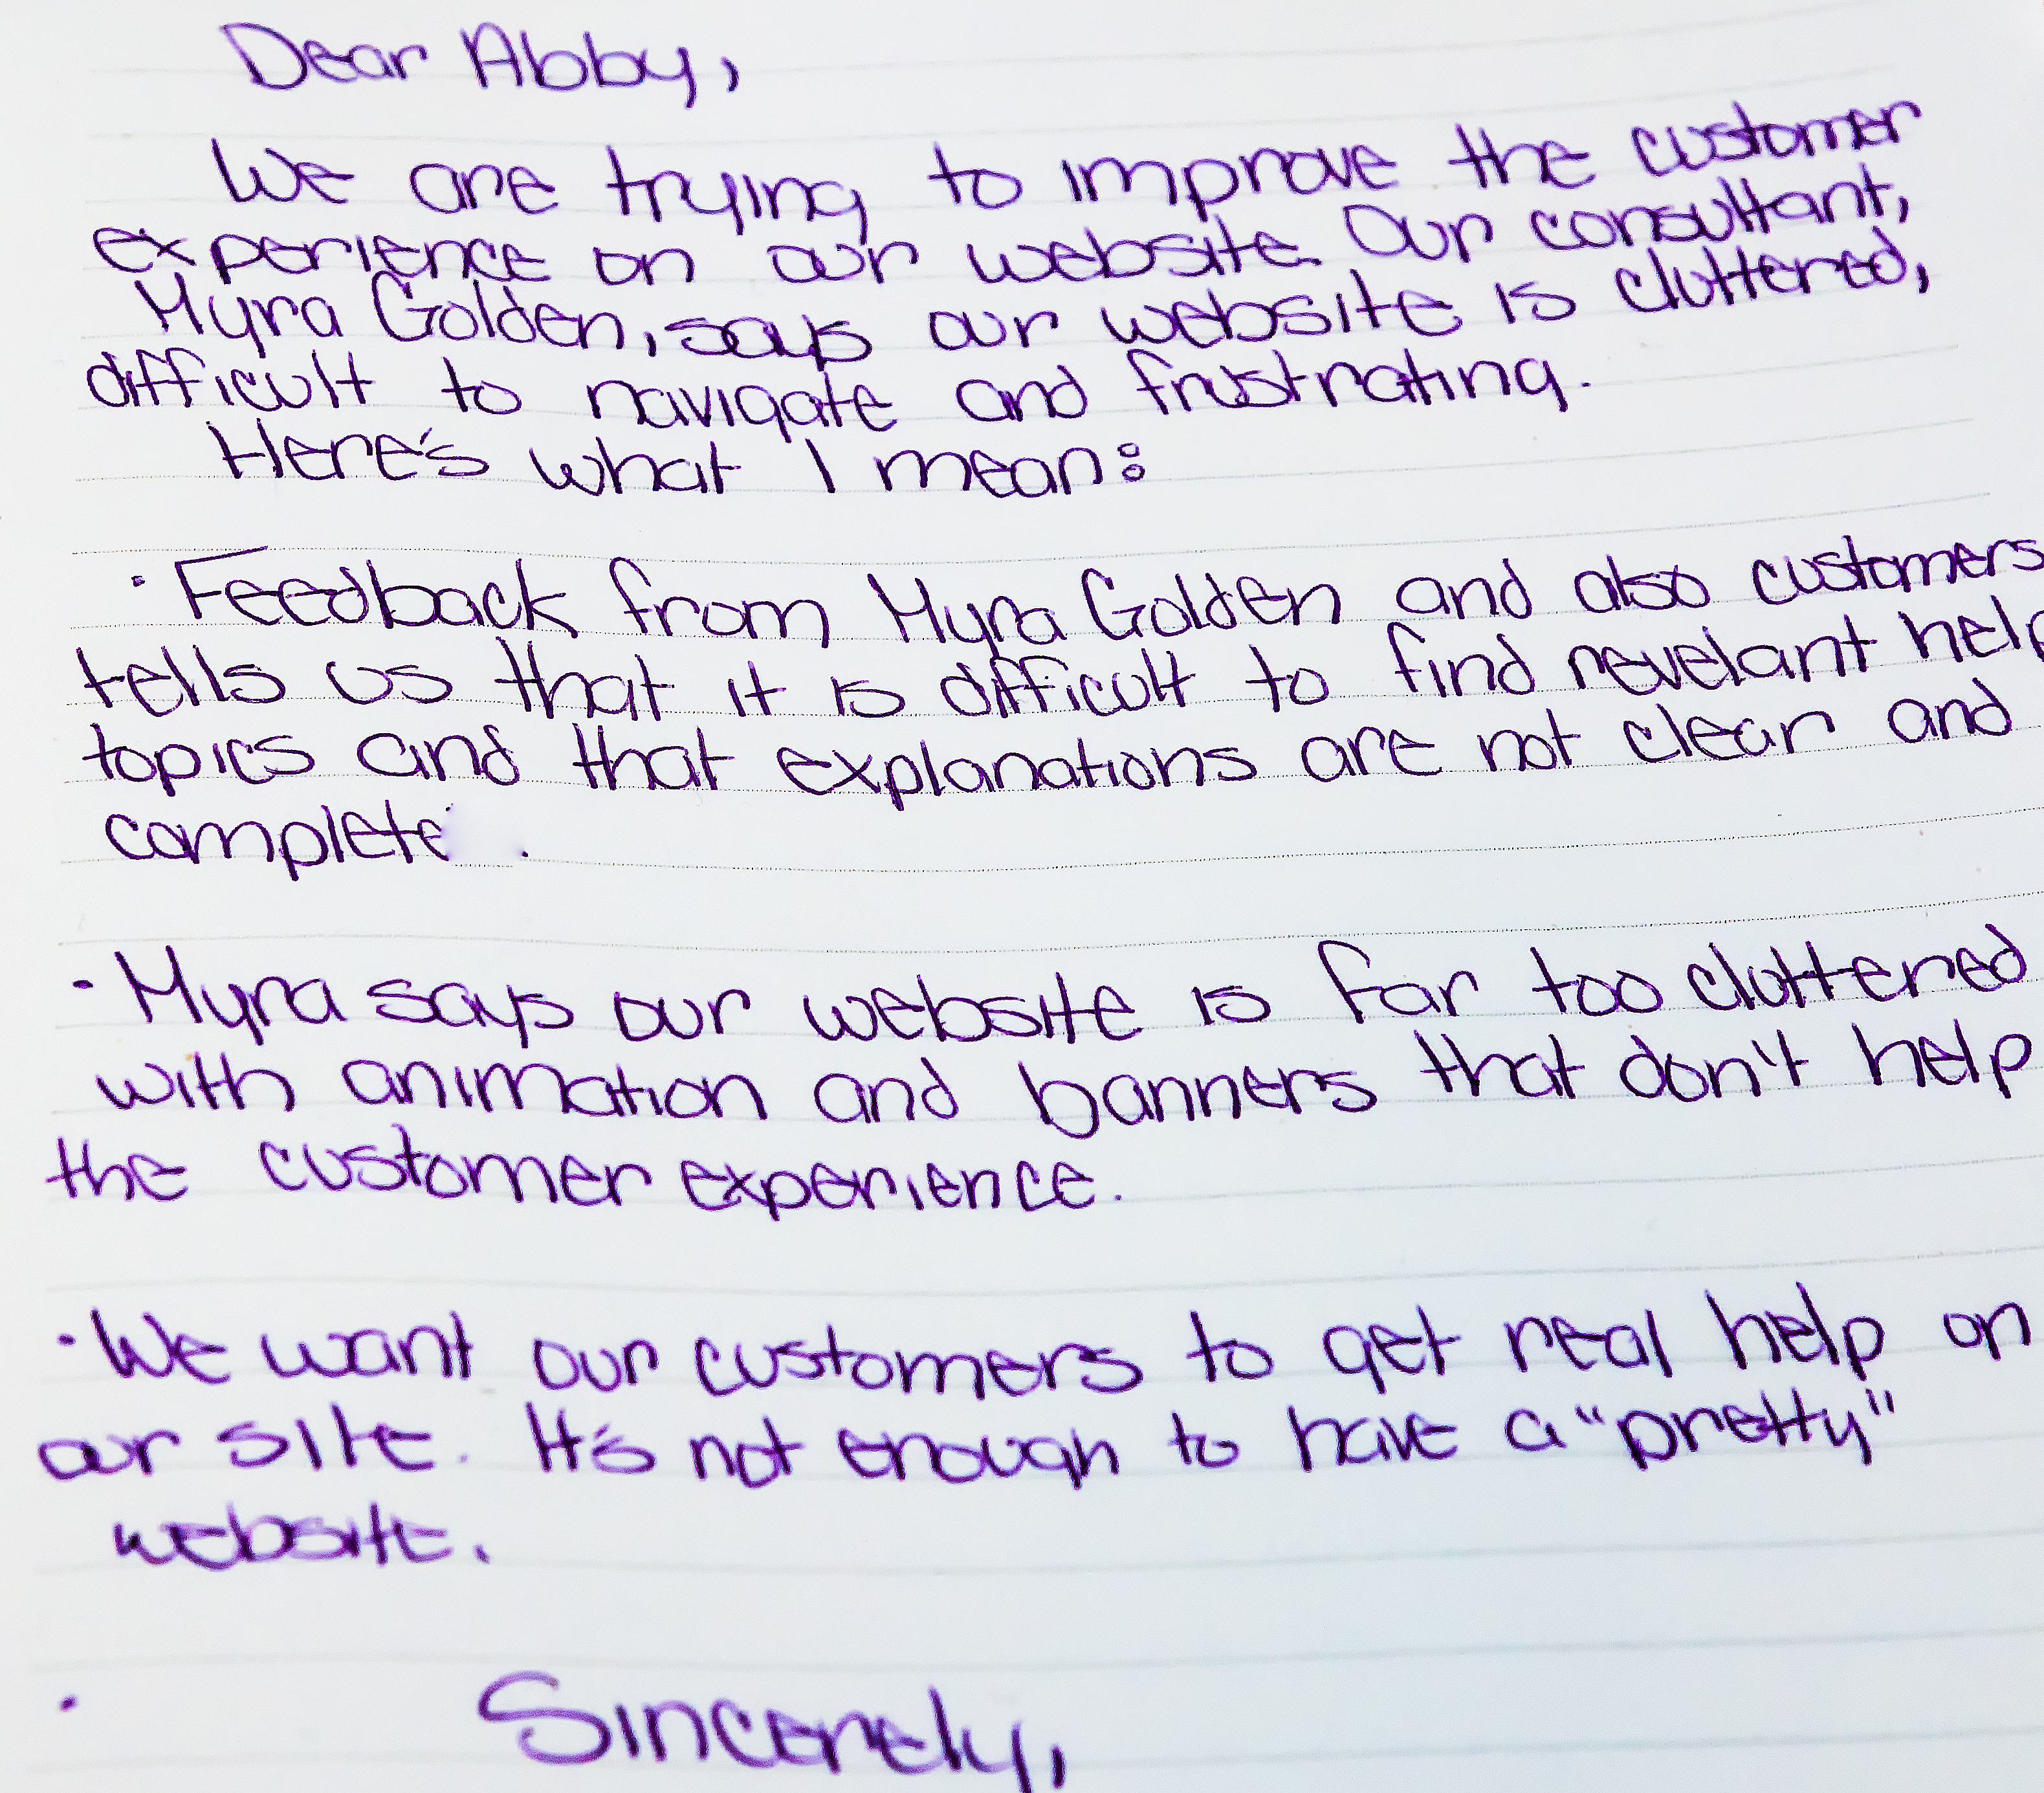 Dear Abby,
We are trying to improve the customer
experience on our website. Our consultant,
Myra Golden, says our website is cluttered,
difficult to navigate and frustrating.
Here's what I mean:
· Feedback from Myra Golden and also customers
tells us that it is difficult to find revelant help
topics and that explanations are not clear and
complete .
· Myra says our website is far too cluttered
with animation and banners that don't help
the customer experience.
· We want our customers to get real help on
our site. It's not enough to have a "pretty"
website.
· Sincerely,